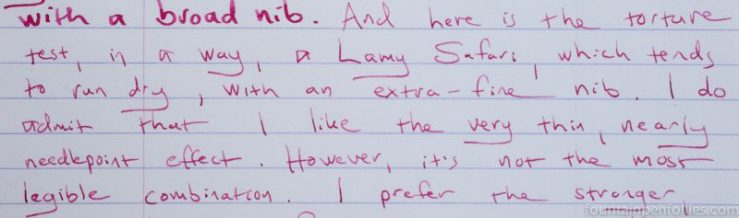 with a broad nib. And here is the torture
test, in a way, a Lamy Safari, which tends
to run dry, with an extra-fine nib. I do
admit that I like the very thin, nearly
needlepoint effect. However, it's not the most
legible combination. I prefer the stronger
fountainpenfollies.com